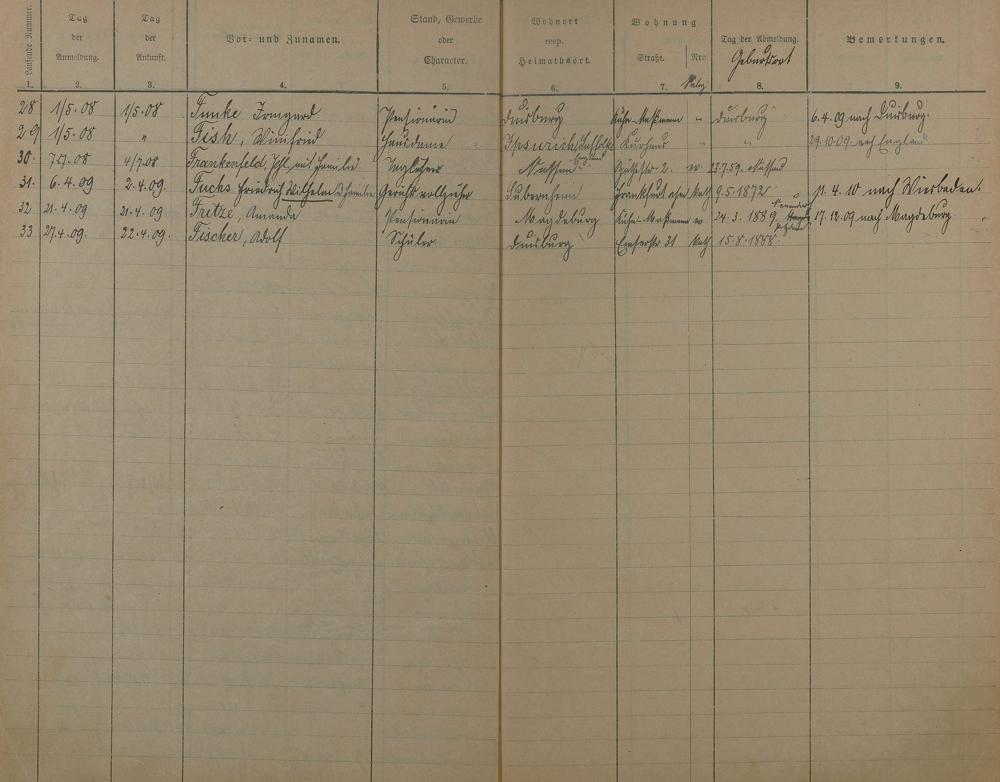 Laufende Nummer. Tag der Anmeldung. Tag der Ankunft. Vor- und Zunamen. Stand, Gewerbe oder Character. Wohnort resp. Heimathsort. Wohnung Straße. Nro. Relig. Tag der Abmeldung. Geburtsort Bemerkungen.
1. 2. 3. 4. 5. 6. 7. 8. 9.
28 1/5.08 1/5.08 Funke Irmgard Pensionärin Duisburg " Duisburg 6.4.09 nach Duisburg.
29 1/5.08 " Fish, Winifried Ipswich Kurhaus " " 29.10.09 nach England
30. 7.7.08 4/7.08 Frankenfeld, mit Familie Nassau 2. ev. Nassau
31. 6.4.09 2.4.09. Fuchs Friedrich Wilhelm Familie Gerichtsvollzieher Frankfurt kath 9.5.1872 11.4.10 nach Wiesbaden.
32 21.4.09 21.4.09. Fritze, Amanda Pensionärin Magdeburg ev 24.3.1889 17.12.09 nach Magdeburg
33 27.4.09. 22.4.09. Fischer, Adolf Schüler Duisburg Emserstr 31 kath 15.8.1888